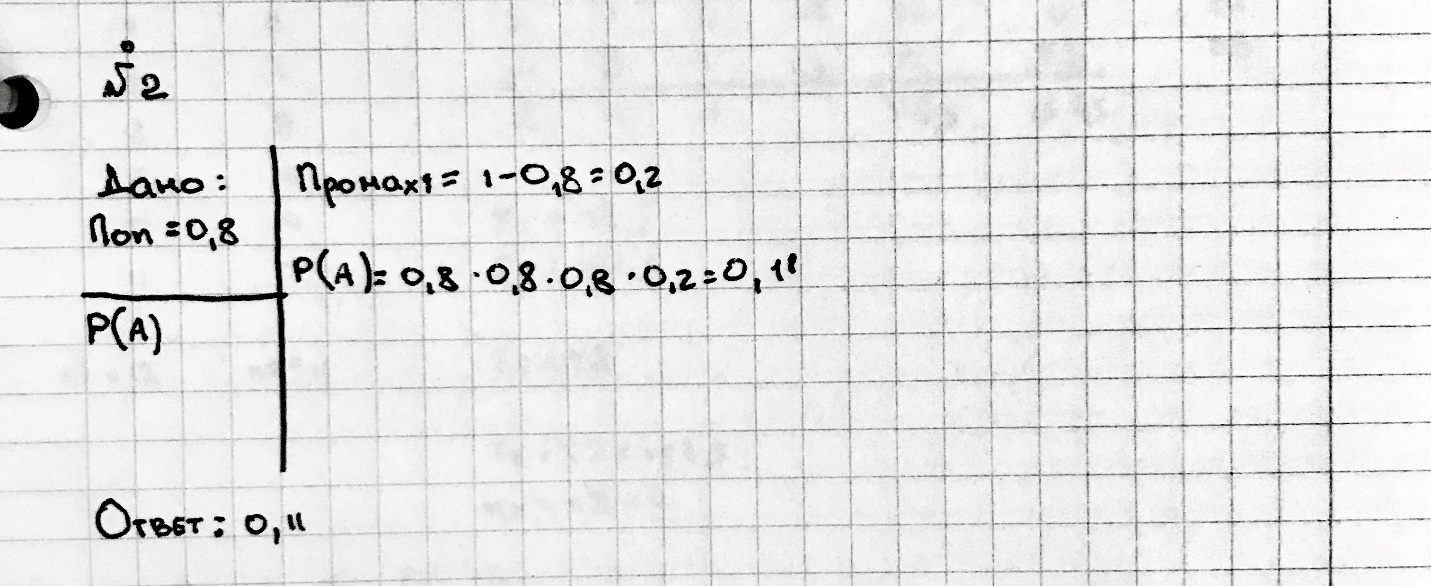 №2
Дано:
Поп = 0,8
P(A)
Промах1 = 1-0,8=0,2
P(A)= 0,8 · 0,8 · 0,8 · 0,2=0,11
Ответ: 0,11